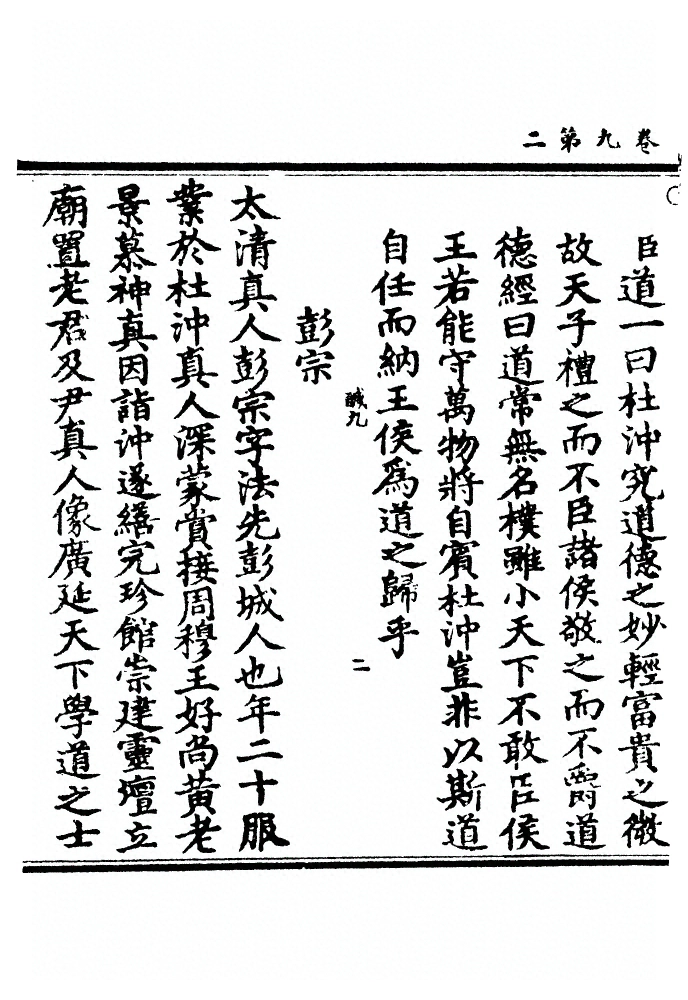 卷九第二
臣道一曰杜沖究道德之妙輕富貴之微
故天子禮之而不臣諸侯敬之而不爵道
德經曰道常無名樸雖小天下不敢臣侯
王若能守萬物將自賓杜沖豈非以斯道
自任而納王侯為道之歸乎
鹹九
二
彭宗
太清真人彭宗字法先彭城人也年二十服
業於杜沖真人深蒙賞接周穆王好尚黃老
景慕神真因詣沖遂繕完珍館崇建靈壇立
廟置老君及尹真人像廣延天下學道之士